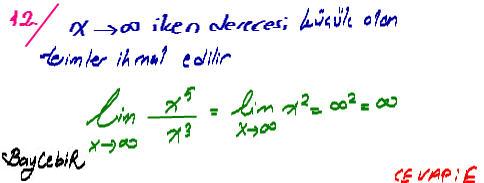 12/ x→∞ iken derecesi küçük olan
terimler ihmal edilir
lim x→∞ x⁵/x³ = lim x→∞ x² = ∞² = ∞
BayCebiR
CEVAP:E